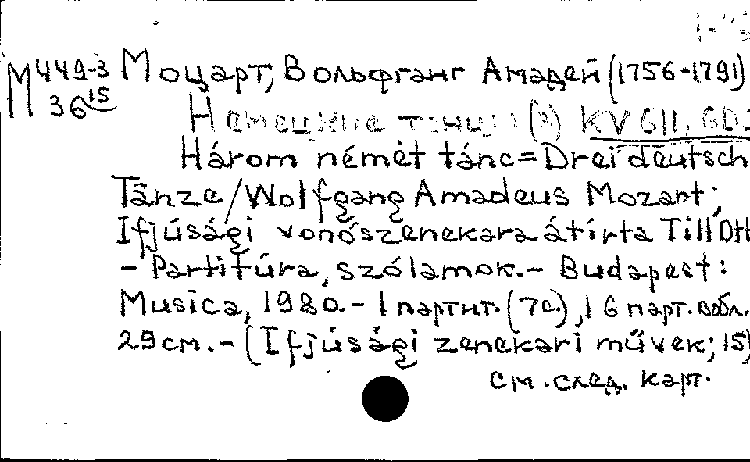 М 449-3
36 15
Моцарт, Вольфганг Амадей (1756-1791)
Немецкие танцы (3) KV 611, 60.
Három német tánc = Drei deutsch
Tänze / Wolfgang Amadeus Mozart;
Ifjúsági vonószenekara átírta Till Ott
- Partitúra, szólamok. - Budapest:
Musica, 1980. - 1 партит. (7с.), 16 парт. вобл.
29см. - (Ifjúsági zenekari művek; 15)
см. след. карт.